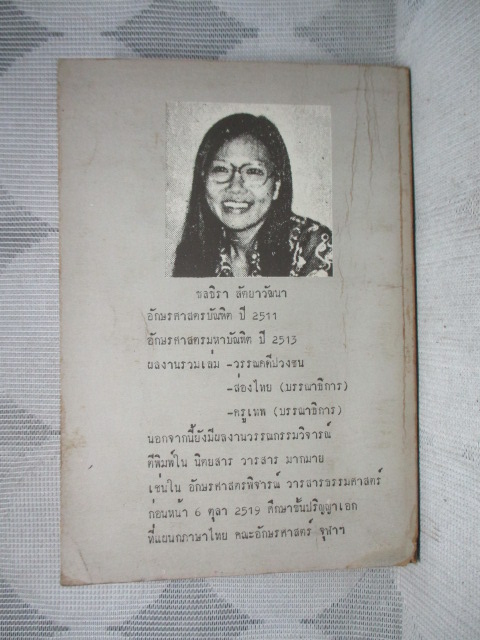 ชลธิรา สัตยาวัฒนา
อักษรศาสตรบัณฑิต ปี 2511
อักษรศาสตรมหาบัณฑิต ปี 2513
ผลงานรวมเล่ม -วรรณคดีปวงชน
-ส่องไทย (บรรณาธิการ)
-ครูเทพ (บรรณาธิการ)
นอกจากนี้ยังมีผลงานวรรณกรรมวิจารณ์
ตีพิมพ์ใน นิตยสาร วารสาร มากมาย
เช่นใน อักษรศาสตร์พิจารณ์ วารสารธรรมศาสตร์
ก่อนหน้า 6 ตุลา 2519 ศึกษาขั้นปริญญาเอก
ที่แผนกภาษาไทย คณะอักษรศาสตร์ จุฬาฯ